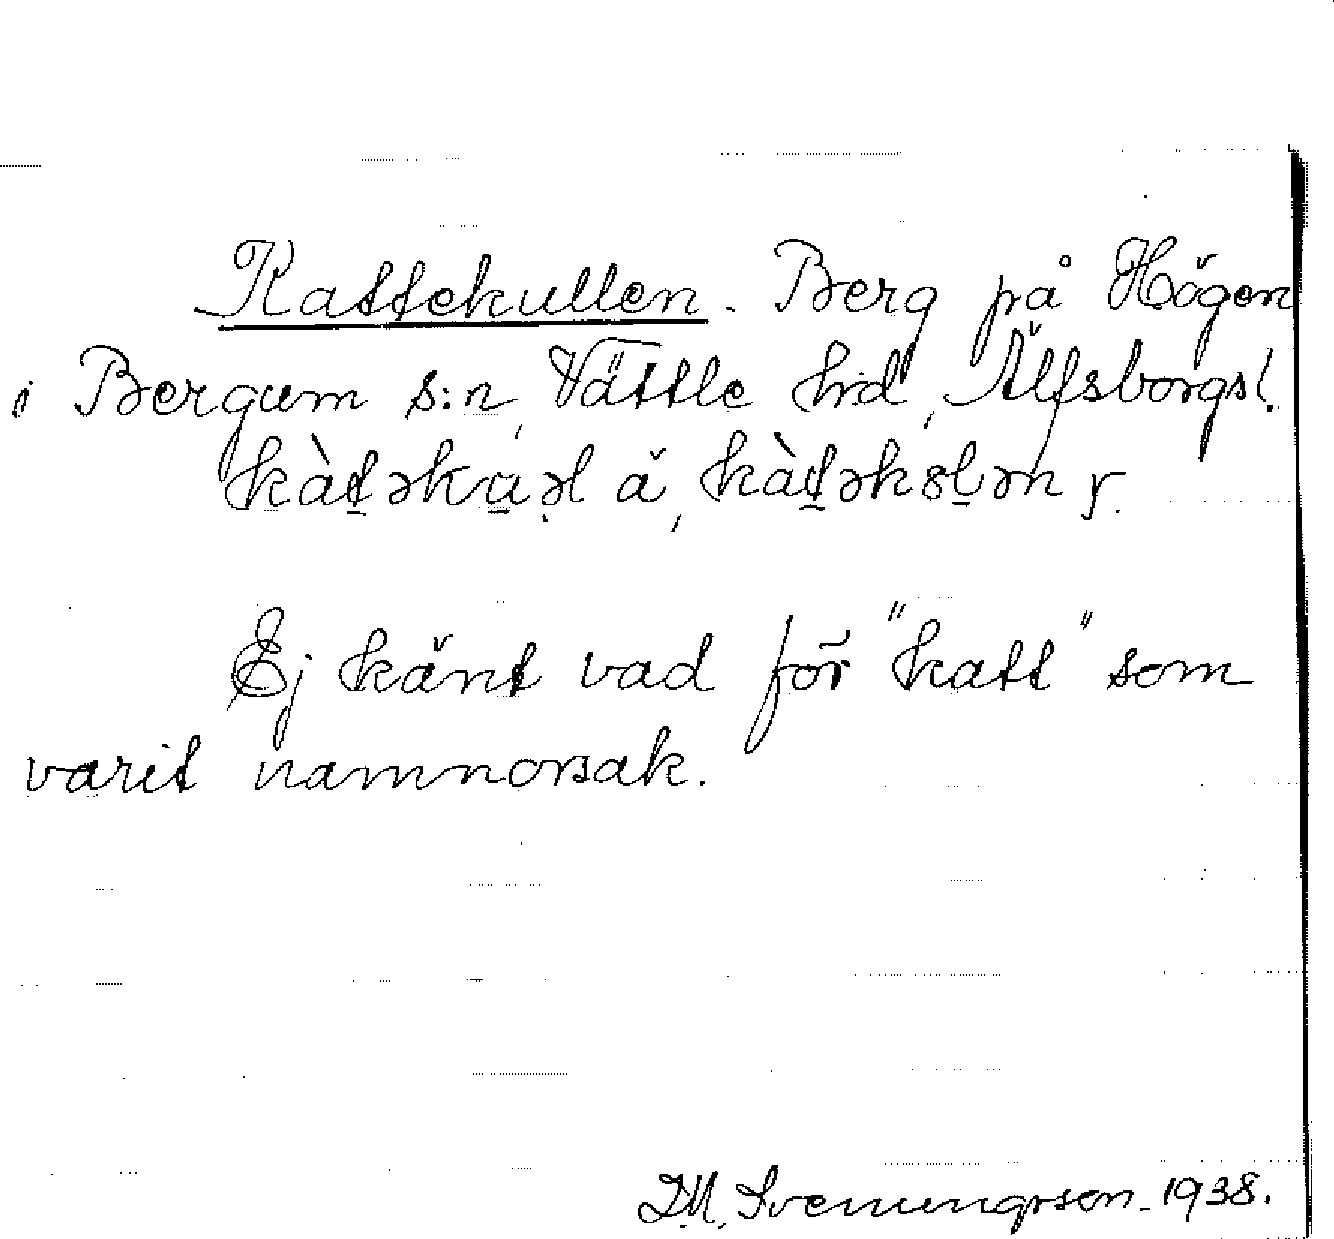 Kattekullen. Berg på Högen
i Bergum s:n, Vättle hd, Älfsborgs l.
Ej känt vad för "katt" som
varit namnorsak.
D.M. Svenungsson 1938.